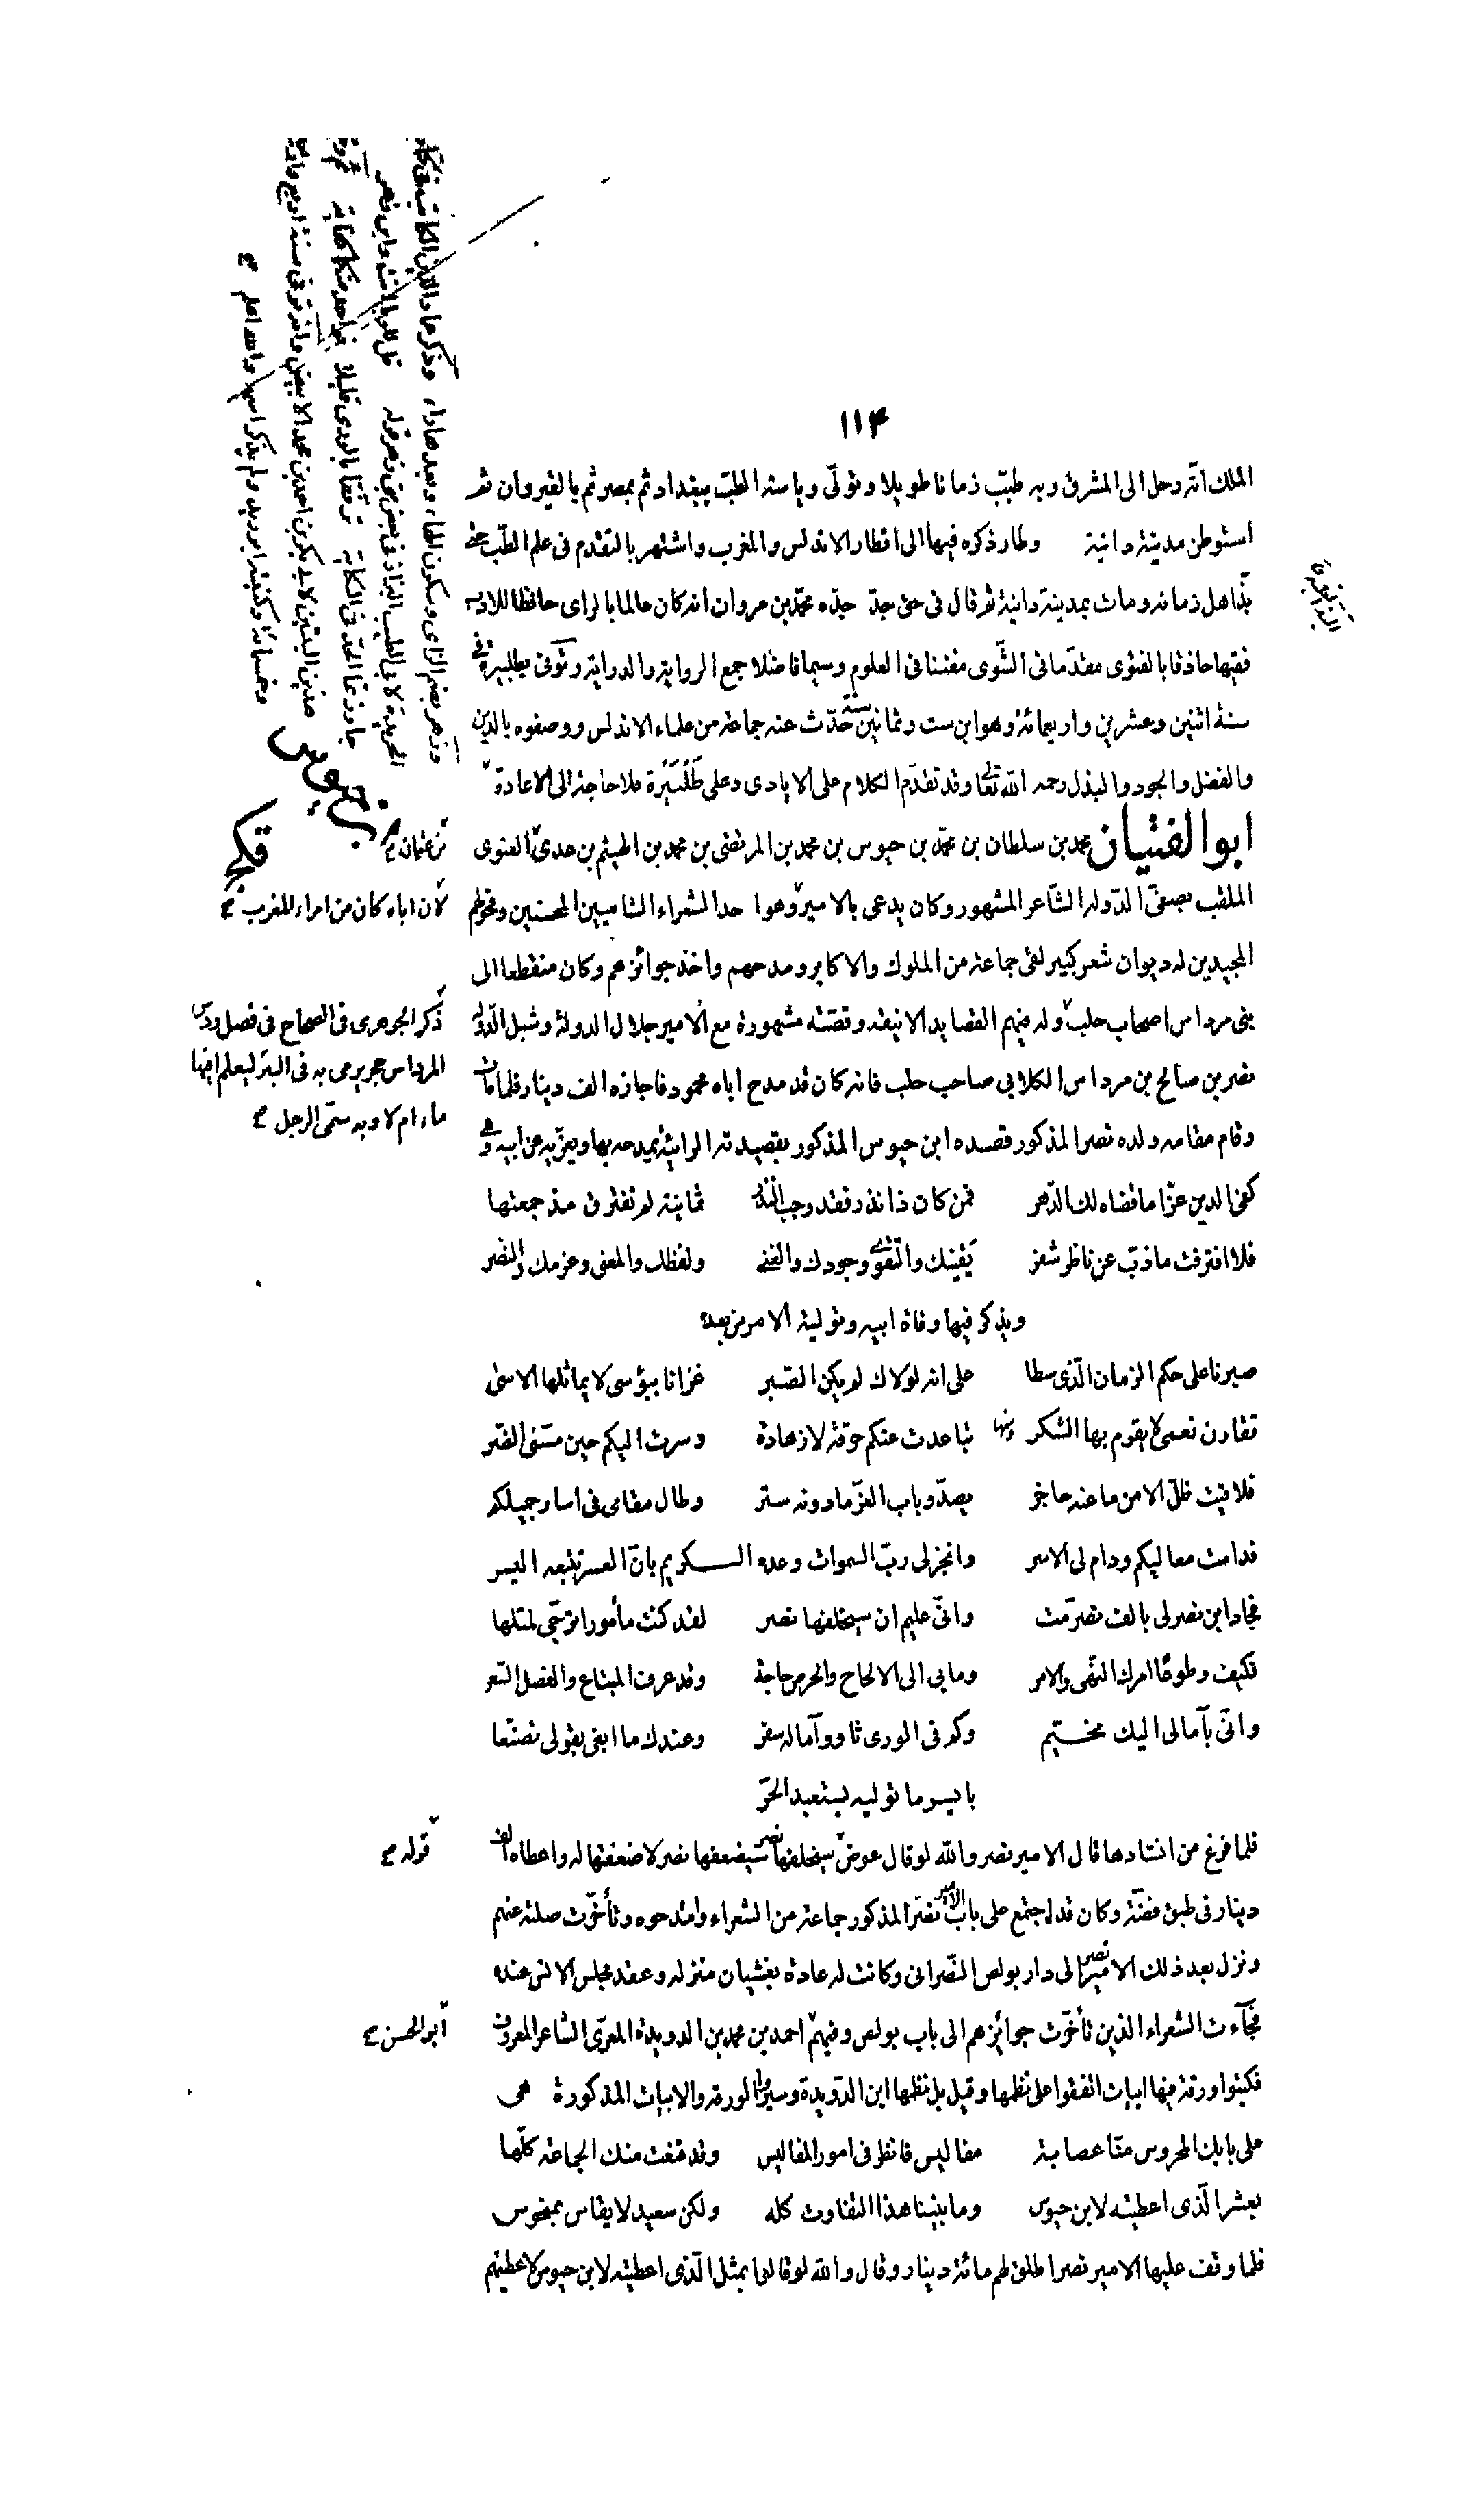 ١١۴
الملك انّه رحل الى المشرق وبه طبّب زمانا طويلا وتولّى رياسة الطبّ ببغداد ثم بمصر ثم بالقيروان ثم
استوطن مدينة دانية وطار ذكره فيها الى اقطار الاندلس والمغرب واشتهر بالتقدم فى علم الطبّ حتى
بذّ اهل زمانه ومات بمدينة دانية ثم قال فى حق جدّ جدّه محمّد بن مروان انه كان عالما بالراى حافظا للادب
فقيها حاذقا بالفتوى مقدّما فى الشّورى مفننا فى العلوم وسيما فاضلا جمع الرواية والدراية وتوفى بطلبيرة فى
سنة اثنين وعشرين واربعمائة وهو ابن ست وثمانين سنة حدّث عنه جماعة من علماء الاندلس ووصفوه بالدين
والفضل والجود والبذل رحمه الله تعا وقد تقدّم الكلام على الايادى وعلى طَلَبيرة فلا حاجة الى الاعادة
ابو الفتيان محمد بن سلطان بن محمّد بن حيوس بن محمد بن المرتضى بن محمد بن الهيثم بن عدىّ الغنوى
الملقب بصفىّ الدّولة الشّاعر المشهور وكان يدعى بالامير وهو احد الشعراء الشاميين المحسنين وفحولهم
المجيدين له ديوان شعر كبير لقى جماعة من الملوك والاكابر ومدحهم واخذ جوائزهم وكان منقطعا الى
بنى مرداس اصحاب حلب وله فيهم القصايد الانيقة وقصّته مشهورة مع الامير جلال الدولة وشبل الدّولة
نصر بن صالح بن مرداس الكلابى صاحب حلب فانه كان قد مدح اباه محمود فاجازه الف دينار فلما مات
وقام مقامه ولده نصر المذكور قصده ابن حيوس المذكور بقصيدته الرائية يمدحه بها ويعزّيه عن ابيه وهى
كفى الدين عزّا ما قضاه لك الدّهر فمن كان ذا نذر فقد وجب النّذر ثمانية لم تفترق مذ جمعتها
فلا افترقت ما ذبّ عن ناظر شفر يقينك والتّقوى وجودك والغنى ولفظك والمعنى وعزمك والنصر
ويذكر فيها وفاة ابيه وتولية الامر من بعده
صبرنا على حكم الزمان الّذى سطا على انه لولاك لم يكن الصّبر غزانا ببؤسى لا يماثلها الاسى
تقارن نعمى لا يقوم بها الشكر ومنها تباعدت عنكم حرقة لا زهادة وسرت اليكم حين مسّنى الضّر
فلاقيت ظلّ الامن ما عنه حاجز يصدّ وباب العزّ ما دونه ستر وطال مقامى فى اسار جميلكم
فدامت معاليكم ودام لى الاسر وانجز لى ربّ السموات وعده الكريم بانّ العسر يتبعه اليسر
فجاد ابن نصر لى بالف تصرّمت وانّى عليم ان سيخلفها نصر لقد كنت مأمورا ترجّى لمثلها
فكيف وطوعًا امرك النّهى والامر وما بى الى الالحاح والحرص حاجة وقد عرف المبتاع وانفصل السّعر
وانّى بآمالى اليك مخيّم وكم فى الورى ثاو وآماله سفر وعندك ما ابغى بقولى تصنّعا
بايسر ما توليه يستعبد الحرّ
فلما فرغ من انشادها قال الامير نصر والله لو قال عوض سيخلفها نصر سيضعفها نصر لاضعفتها له واعطاه الف
دينار فى طبق فضّة وكان قد اجتمع على باب الامير نصر المذكور جماعة من الشعراء وامتدحوه وتأخّرت صلته عنهم
ونزل بعد ذلك الامير نصر الى دار بولص النّصرانى وكانت له عادة بغشيان منزله وعقد مجلس الانس عنده
فجآءت الشعراء الذين تأخّرت جوائزهم الى باب بولص وفيهم احمد بن محمد بن الدويدة المعرّى الشاعر المعروف
فكتبوا ورقة فيها ابيات اتفقوا على نظمها وقيل بل نظمها ابن الدّويدة وسيروا الورقة والابيات المذكورة هى
على بابك المحروس منّا عصابة مفاليس فانظر فى امور المفاليس وقد قنعت منك الجماعة كلّها
بعشر الّذى اعطيته لابن حيوّس وما بيننا هذا التفاوت كله ولكن سعيد لا يقاس بمنحوس
فلما وقف عليها الامير نصر اطلق لهم مائة دينار وقال والله لو قالوا بمثل الّذى اعطيته لابن حيوس لاعطيتهم
ابن حيوس
بن عثمان صح
لأن اباه كان من امراء المغرب صح
ذكر الجوهرى فى الصحاح فى فصل ردس
المرداس حجر يرمى به فى البئر ليعلم افيها
ماء ام لا وبه سمّى الرجل صح
قوله صح
ابو الحسن صح
وزهر بضم الزاى وسكون الهاء وبعدها راء وذكر عماد الدين الكاتب فى كتاب
الخريدة لابى الطيب البزاز فى بعض بنى زهر قوله قل للوبا انت وابن زهر
جاوزتما الحدّ فى النكاية ترفّقا بالورى قليلا فواحد منكما كفاية
وخمسمائة وكنيته ابو زيد ولم يذكر اسمه والله اعلم صح